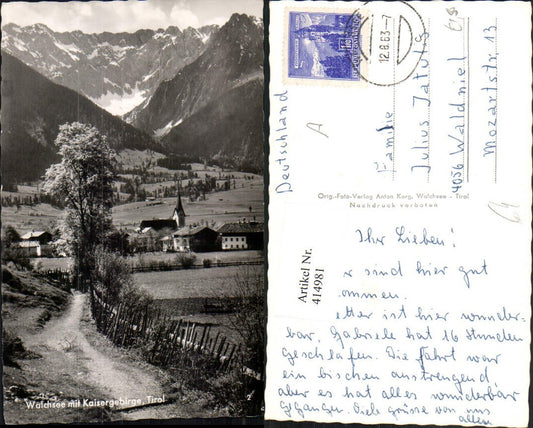 Walchsee mit Kaisergebirge, Tirol
12.8.63-7
Deutschland
A
Familie
Julius Jatuls
4056 Waldniel
Mozartstr 13
Orig.-Foto-Verlag Anton Karg, Walchsee - Tirol
Nachdruck verboten
Artikel Nr.
414981
Ihr Lieben!
r sind hier gut
ommen.
etter ist hier wunder-
bar, Gabriele hat 16 Stunden
geschlafen. Die Fahrt war
ein bischen anstrengend
aber es hat alles wunderbar
geganger. Viele grüsse von uns
allen